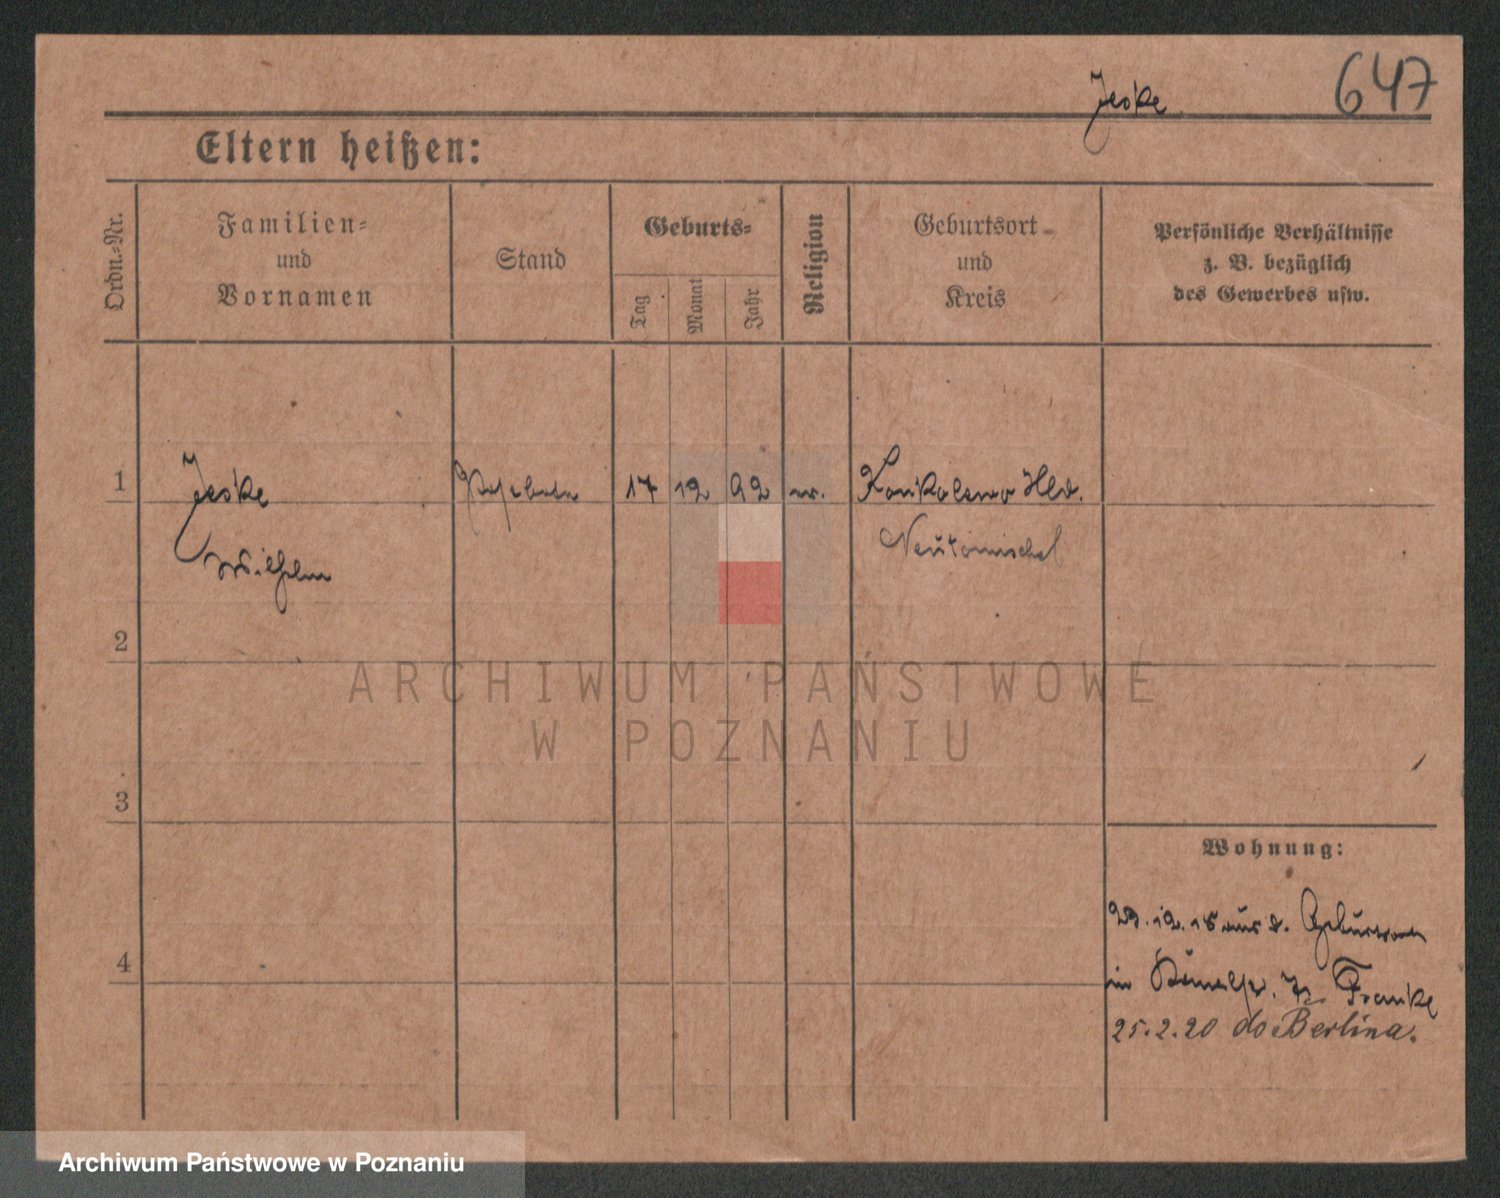 Jeske
647
Eltern heißen:
Ordn.-Nr.
Familien-
und
Vornamen
Stand
Geburts-
Tag
Monat
Jahr
Religion
Geburtsort
und
Kreis
Persönliche Verhältnisse
z. B. bezüglich
des Gewerbes usw.
1
Jeske
17 12 92
Konkolewo Hld.
Neutomischel
Wilhelm
2
ARCHIWUM PAŃSTWOWE
W POZNANIU
3
Wohnung:
4
29. 12. 18 aus d. Geburtsort
in Franke
25.2.20 do Berlina.
Archiwum Państwowe w Poznaniu